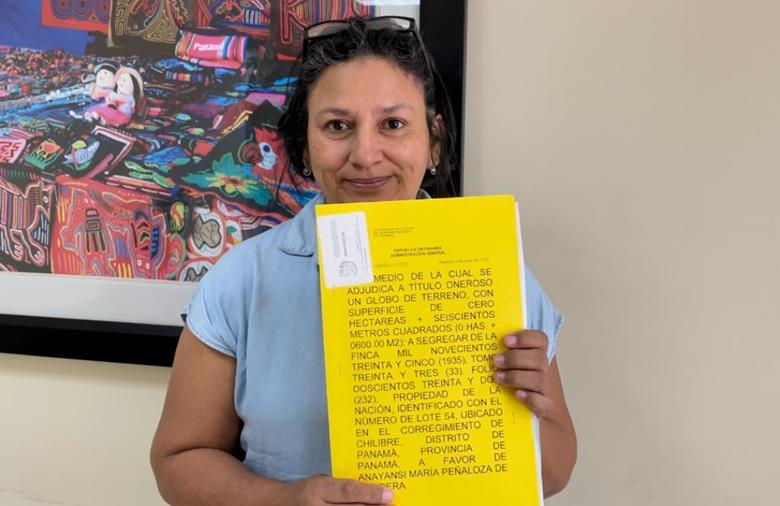 Panamá
REPÚBLICA DE PANAMÁ
ADMINISTRACIÓN GENERAL
MEDIO DE LA CUAL SE
ADJUDICA A TÍTULO ONEROSO
UN GLOBO DE TERRENO, CON
SUPERFICIE DE CERO
HECTÁREAS + SEISCIENTOS
METROS CUADRADOS (0 HAS. +
0600.00 M2); A SEGREGAR DE LA
FINCA MIL NOVECIENTOS
TREINTA Y CINCO (1935), TOMO
TREINTA Y TRES (33), FOLIO
DOSCIENTOS TREINTA Y DO
(232), PROPIEDAD DE LA
NACIÓN, IDENTIFICADO CON EL
NÚMERO DE LOTE 54, UBICADO
EN EL CORREGIMIENTO DE
CHILIBRE, DISTRITO DE
PANAMÁ, PROVINCIA DE
PANAMÁ, A FAVOR DE
ANAYANSI MARÍA PEÑALOZA DE